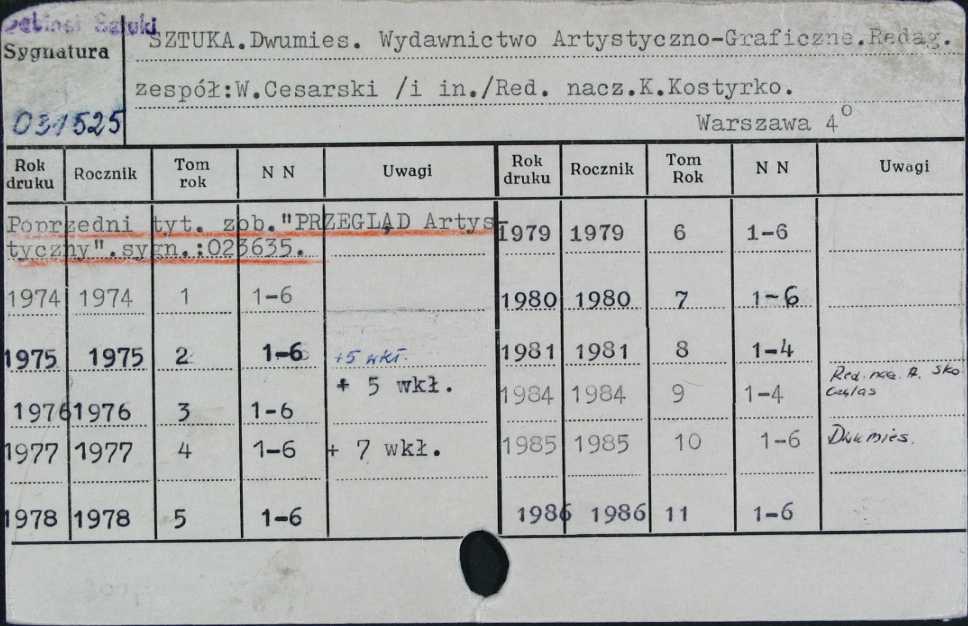 Sztuki
Sygnatura
031525
SZTUKA.Dwumies. Wydawnictwo Artystyczno-Graficzne.Redag.
zespół:W.Cesarski /i in./Red. nacz.K.Kostyrko.
Warszawa 4°
Rok druku Rocznik Tom rok N N Uwagi
Poprzedni tyt. zob."PRZEGLĄD Artys-
tyczny".sygn.:023635.
1974 1974 1 1-6
1975 1975 2 1-6 +5 wkł.
1976 1976 3 1-6 + 5 wkł.
1977 1977 4 1-6 + 7 wkł.
1978 1978 5 1-6
Rok druku Rocznik Tom Rok N N Uwagi
1979 1979 6 1-6
1980 1980 7 1-6
1981 1981 8 1-4
1984 1984 9 1-4 Red. nacz. A. Sko
czylas
1985 1985 10 1-6 Dwumies.
1986 1986 11 1-6